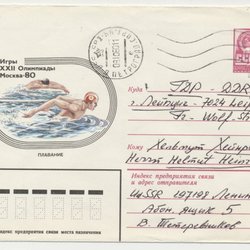 Игры
XXII Олимпиады
Москва-80
ПЛАВАНИЕ
СССР
Куда ГДР - DDR
г. Лейпциг - 7024 Lei
Fr. Wolf-St
Кому Хельмут Хейнр
Herrn Helmut Heinr
Индекс предприятия связи
и адрес отправителя
СССР 197198 Ленин
Абон. ящик 5
В. Тетеревников
Индекс предприятия связи места назначения